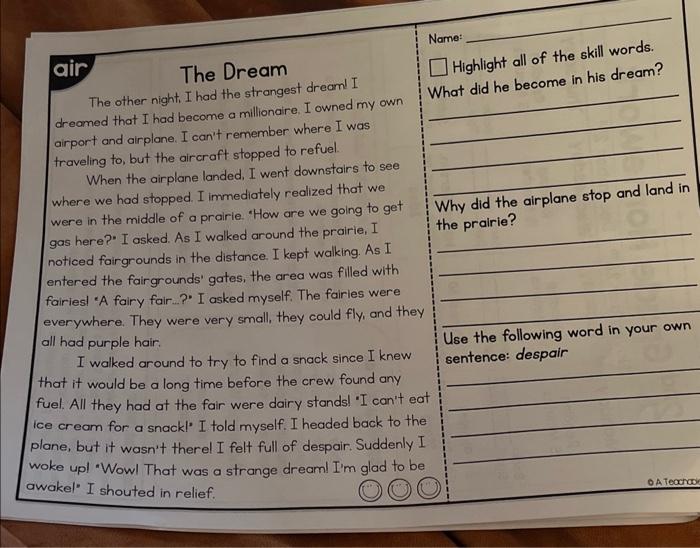 air
The Dream
The other night, I had the strangest dream! I
dreamed that I had become a millionaire. I owned my own
airport and airplane. I can't remember where I was
traveling to, but the aircraft stopped to refuel.
When the airplane landed, I went downstairs to see
where we had stopped. I immediately realized that we
were in the middle of a prairie. "How are we going to get
gas here?" I asked. As I walked around the prairie, I
noticed fairgrounds in the distance. I kept walking. As I
entered the fairgrounds' gates, the area was filled with
fairies! "A fairy fair...?" I asked myself. The fairies were
everywhere. They were very small, they could fly, and they
all had purple hair.
I walked around to try to find a snack since I knew
that it would be a long time before the crew found any
fuel. All they had at the fair were dairy stands! "I can't eat
ice cream for a snack!" I told myself. I headed back to the
plane, but it wasn't there! I felt full of despair. Suddenly I
woke up! "Wow! That was a strange dream! I'm glad to be
awake!" I shouted in relief.
Name:
Highlight all of the skill words.
What did he become in his dream?
Why did the airplane stop and land in
the prairie?
Use the following word in your own
sentence: despair
© A